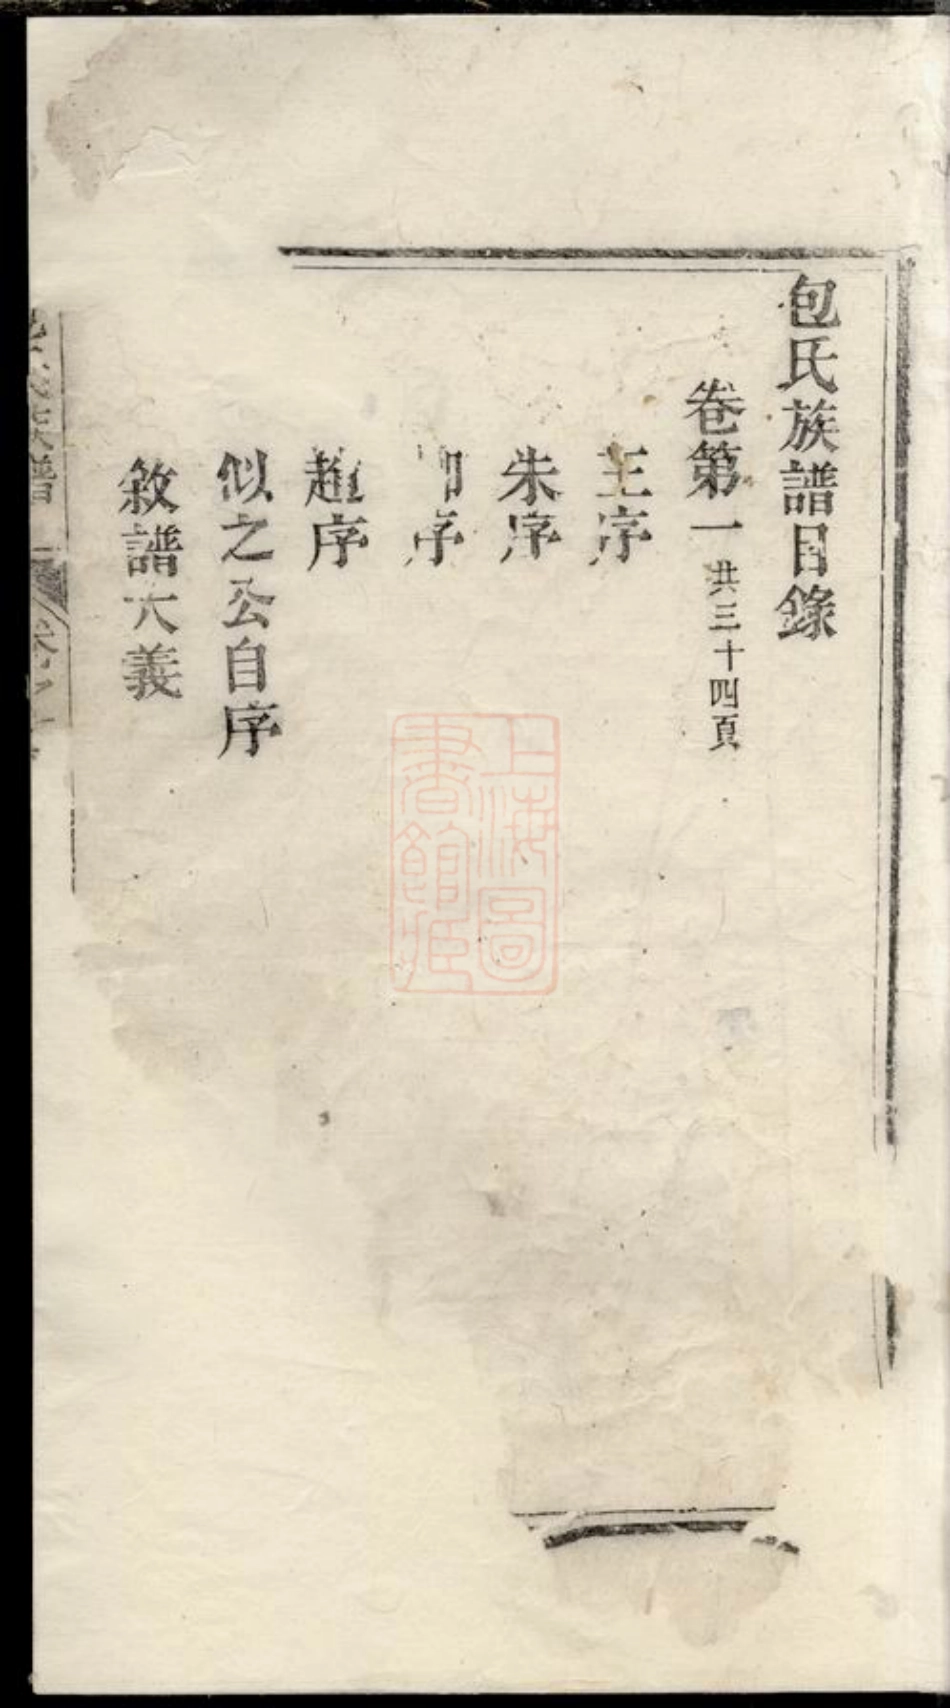 包氏族譜目錄
卷第一 共三十四頁
王序
朱序
序
趙序
似之公自序
敘譜大義
族譜
上海圖書館藏